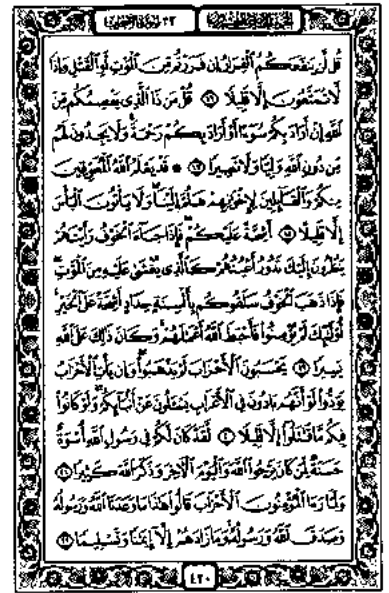 الجزء الحادي والعشرون ٣٣ سورة الأحزاب
قُل لَّن يَنفَعَكُمُ ٱلْفِرَارُ إِن فَرَرْتُم مِّنَ ٱلْمَوْتِ أَوِ ٱلْقَتْلِ وَإِذًا
لَّا تُمَتَّعُونَ إِلَّا قَلِيلًا ١٦ قُلْ مَن ذَا ٱلَّذِى يَعْصِمُكُم مِّنَ
ٱللَّهِ إِنْ أَرَادَ بِكُمْ سُوٓءًا أَوْ أَرَادَ بِكُمْ رَحْمَةً وَلَا يَجِدُونَ لَهُم
مِّن دُونِ ٱللَّهِ وَلِيًّا وَلَا نَصِيرًا ١٧ ۞ قَدْ يَعْلَمُ ٱللَّهُ ٱلْمُعَوِّقِينَ
مِنكُمْ وَٱلْقَآئِلِينَ لِإِخْوَٰنِهِمْ هَلُمَّ إِلَيْنَا وَلَا يَأْتُونَ ٱلْبَأْسَ
إِلَّا قَلِيلًا ١٨ أَشِحَّةً عَلَيْكُمْ فَإِذَا جَآءَ ٱلْخَوْفُ رَأَيْتَهُمْ
يَنظُرُونَ إِلَيْكَ تَدُورُ أَعْيُنُهُمْ كَٱلَّذِى يُغْشَىٰ عَلَيْهِ مِنَ ٱلْمَوْتِ
فَإِذَا ذَهَبَ ٱلْخَوْفُ سَلَقُوكُم بِأَلْسِنَةٍ حِدَادٍ أَشِحَّةً عَلَى ٱلْخَيْرِ
أُو۟لَٰٓئِكَ لَمْ يُؤْمِنُوا۟ فَأَحْبَطَ ٱللَّهُ أَعْمَٰلَهُمْ وَكَانَ ذَٰلِكَ عَلَى ٱللَّهِ
يَسِيرًا ١٩ يَحْسَبُونَ ٱلْأَحْزَابَ لَمْ يَذْهَبُوا۟ وَإِن يَأْتِ ٱلْأَحْزَابُ
يَوَدُّوا۟ لَوْ أَنَّهُم بَادُونَ فِى ٱلْأَعْرَابِ يَسْـَٔلُونَ عَنْ أَنۢبَآئِكُمْ وَلَوْ كَانُوا۟
فِيكُم مَّا قَٰتَلُوٓا۟ إِلَّا قَلِيلًا ٢٠ لَّقَدْ كَانَ لَكُمْ فِى رَسُولِ ٱللَّهِ أُسْوَةٌ
حَسَنَةٌ لِّمَن كَانَ يَرْجُوا۟ ٱللَّهَ وَٱلْيَوْمَ ٱلْآخِرَ وَذَكَرَ ٱللَّهَ كَثِيرًا ٢١
وَلَمَّا رَءَا ٱلْمُؤْمِنُونَ ٱلْأَحْزَابَ قَالُوا۟ هَٰذَا مَا وَعَدَنَا ٱللَّهُ وَرَسُولُهُۥ
وَصَدَقَ ٱللَّهُ وَرَسُولُهُۥ وَمَا زَادَهُمْ إِلَّآ إِيمَٰنًا وَتَسْلِيمًا ٢٢
٤٢٠